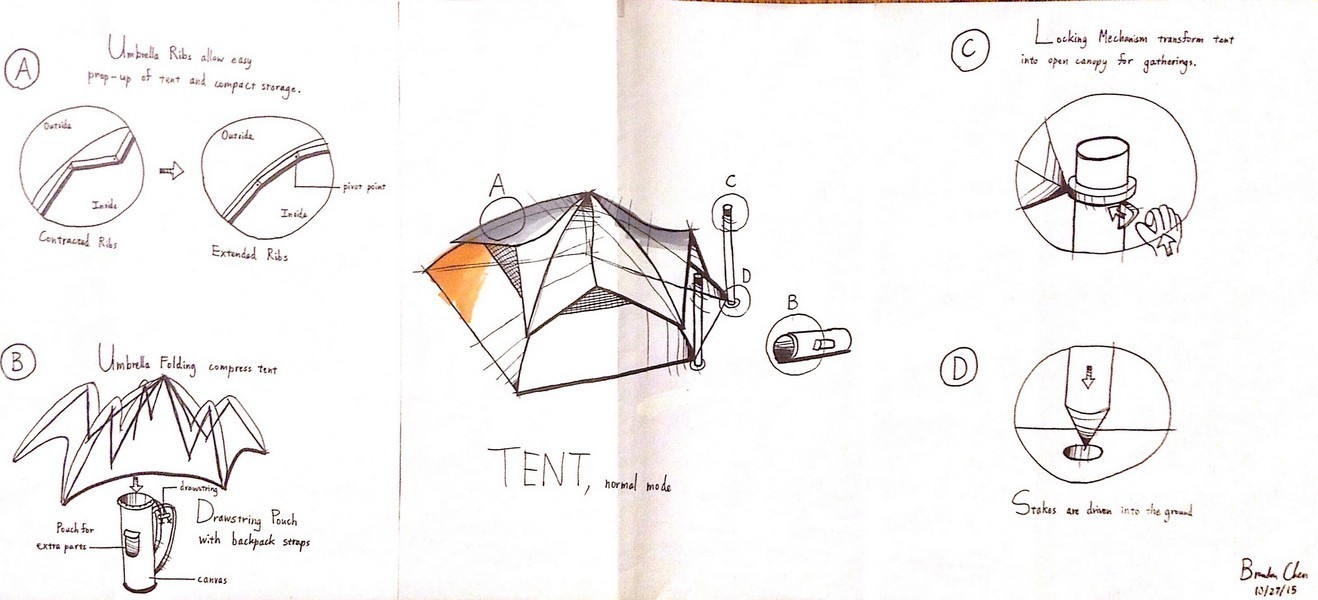 A
Umbrella Ribs allow easy
prop-up of tent and compact storage.
Outside
Inside
Contracted Ribs
Outside
Inside
pivot point
Extended Ribs
B
Umbrella Folding compress tent
drawstring
Drawstring Pouch
with backpack straps
Pouch for
extra parts
canvas
A
C
D
B
TENT, normal mode
C
Locking Mechanism transform tent
into open canopy for gatherings.
D
Stakes are driven into the ground
Brandon Chen
10/27/15